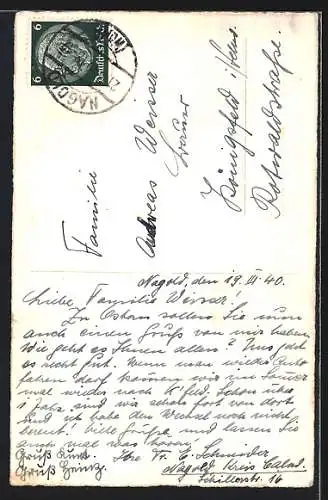 6 6
Deutsches Reich
NAGOLD
Familie
Andreas Weisser
Königsfeld i/Schw.
Rotwaldstraße.
Nagold, den 19. III. 40.
Liebe Familie Weisser!
Zu Ostern sollen Sie nun
auch einen Gruß von mir haben
Wie geht es Ihnen allen? Uns geht
es nicht gut. Wenn man wieder Auto
fahren darf kommen wir im Sommer
mal wieder nach K'feld. Schon über
1 Jahr sind wir schon fort von dort
und ich habe den Wechsel noch nicht
bereut! Viele Grüße und lassen Sie
auch mal was hören!
Ihre Fr. E. Schneider
Gruß Kurt.
Gruß Heinz.
Nagold Kreis Calw.
Schillerstr. 16